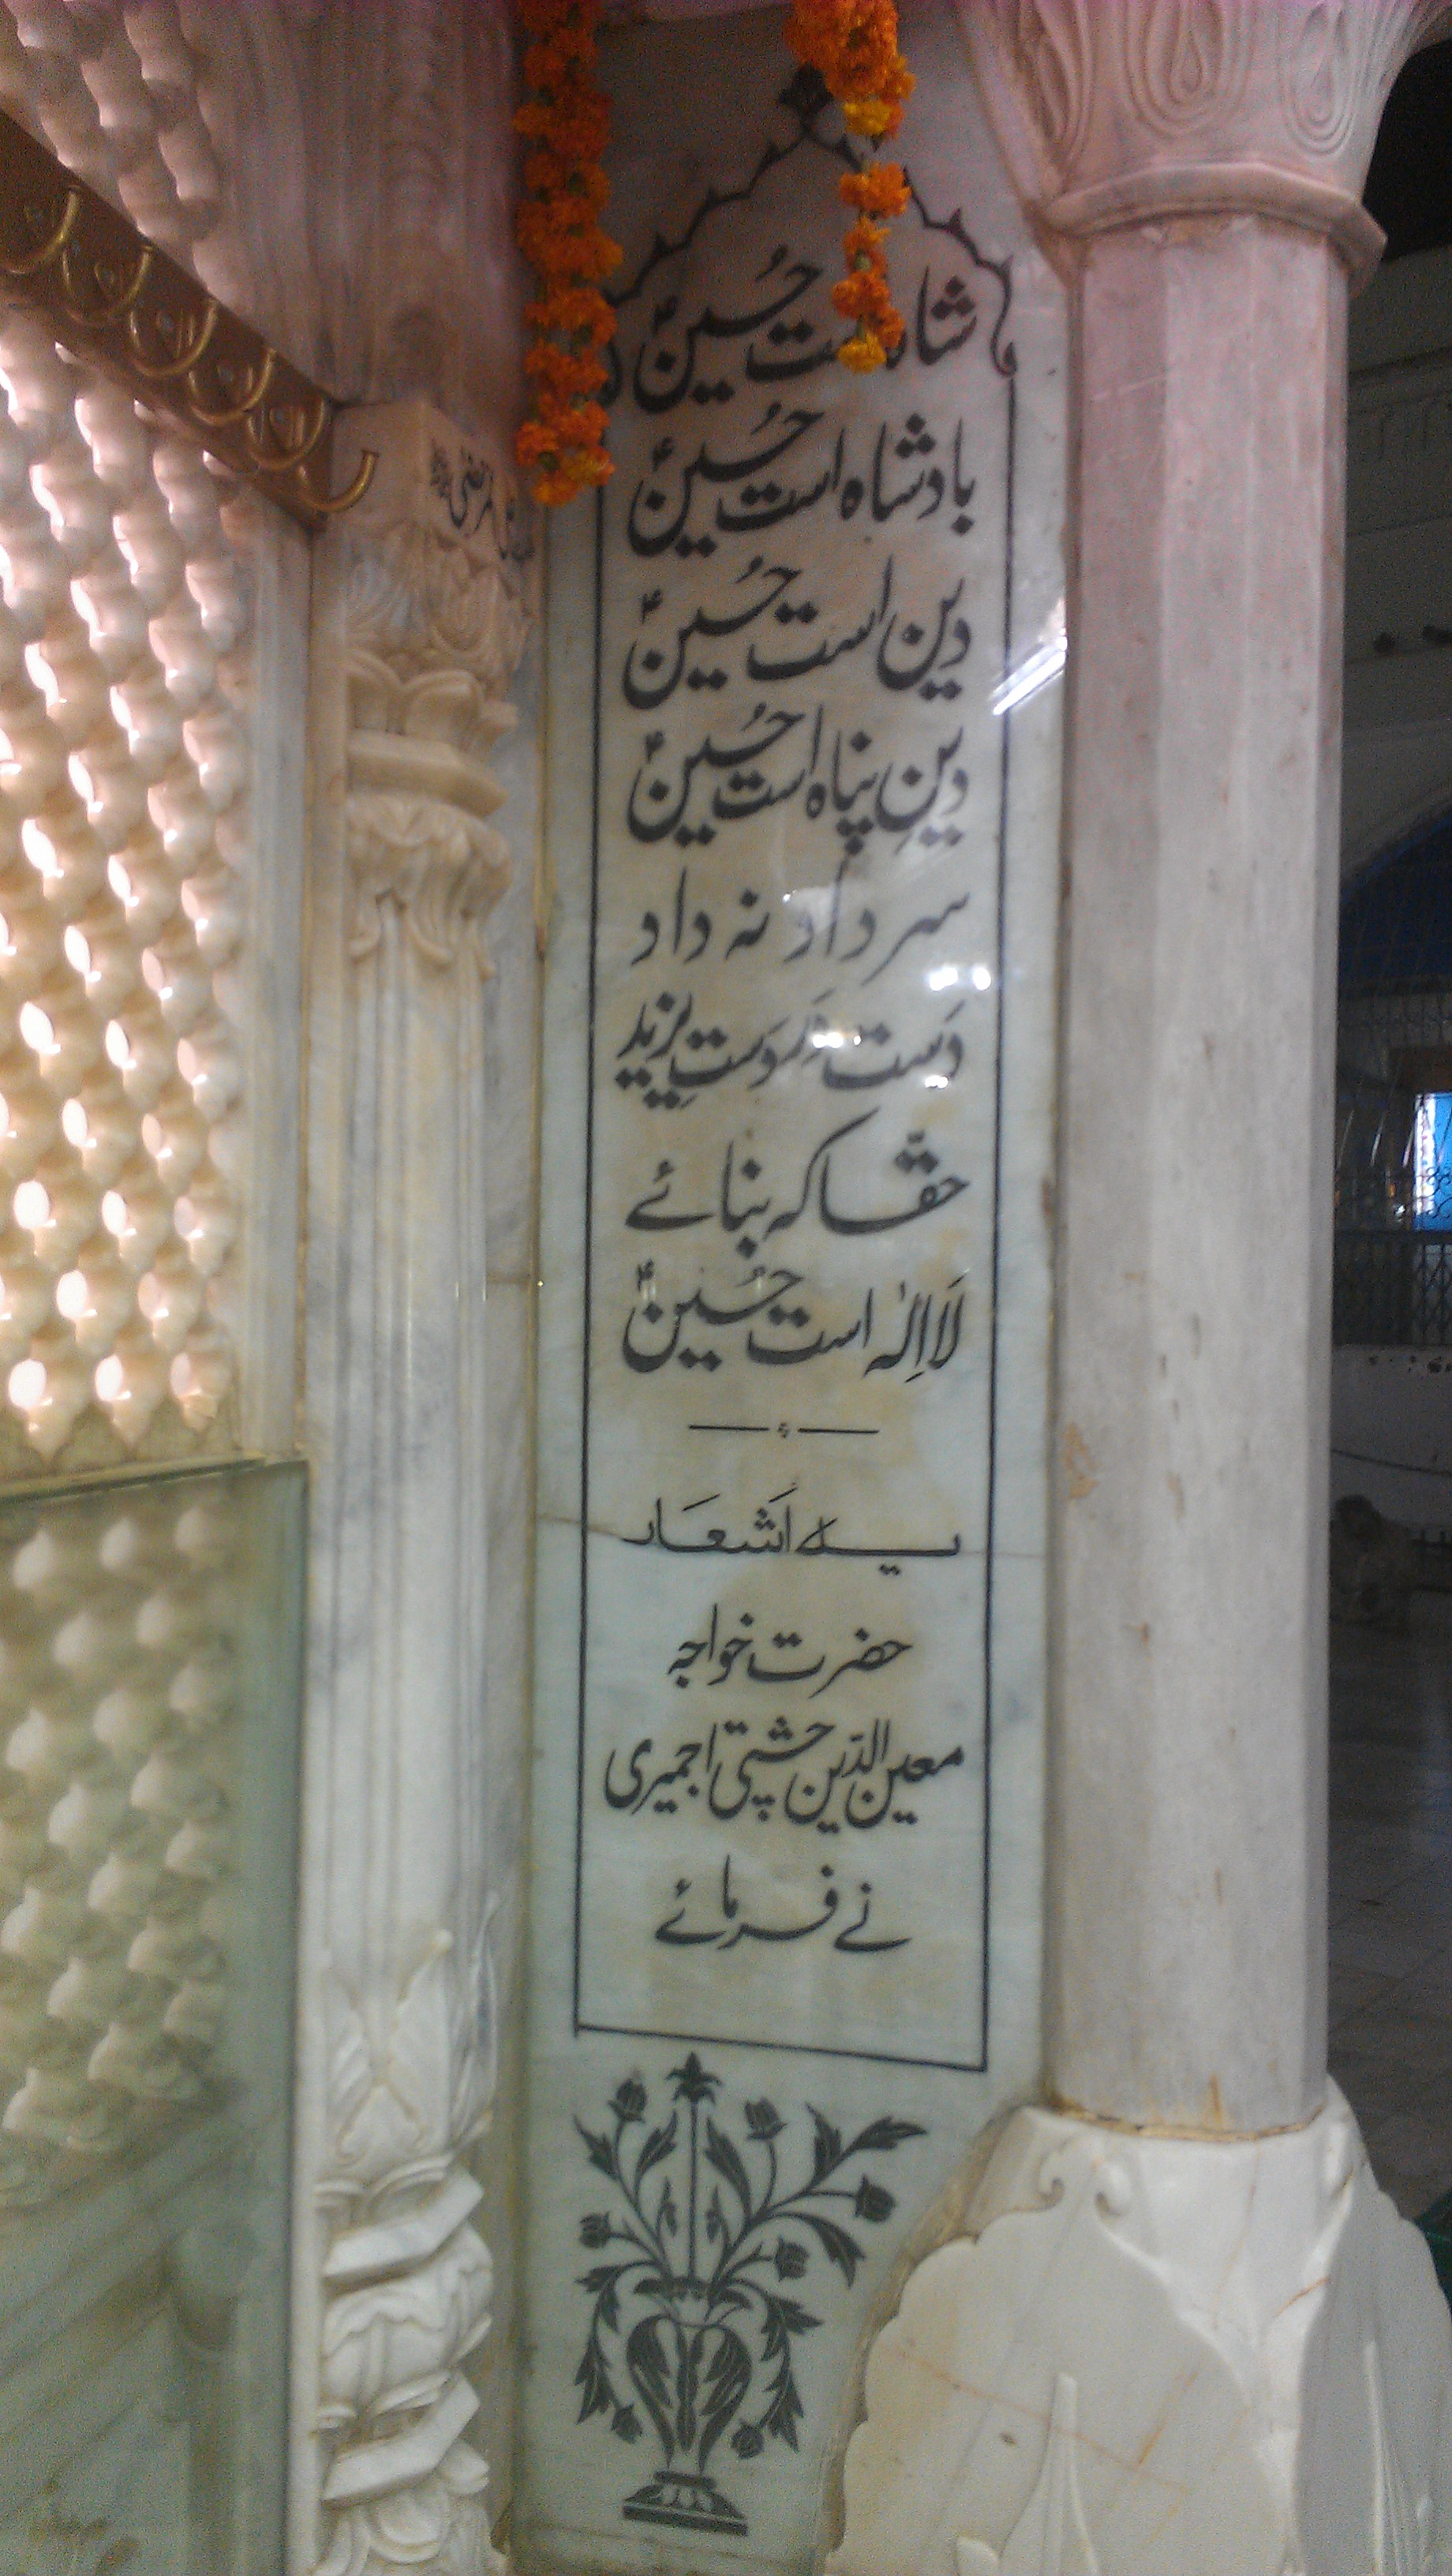 شاہ است حُسینؑ
بادشاہ است حُسینؑ
دین است حُسینؑ
دینِ پناہ است حُسینؑ
سر داد نہ داد
دَست دَر دَستِ یزید
حقّا کہ بنائے
لَا اِلٰہ است حُسینؑ
یہ اَشعَار
حضرت خواجہ
معین الدّین چشتی اجمیری
نے فرمائے